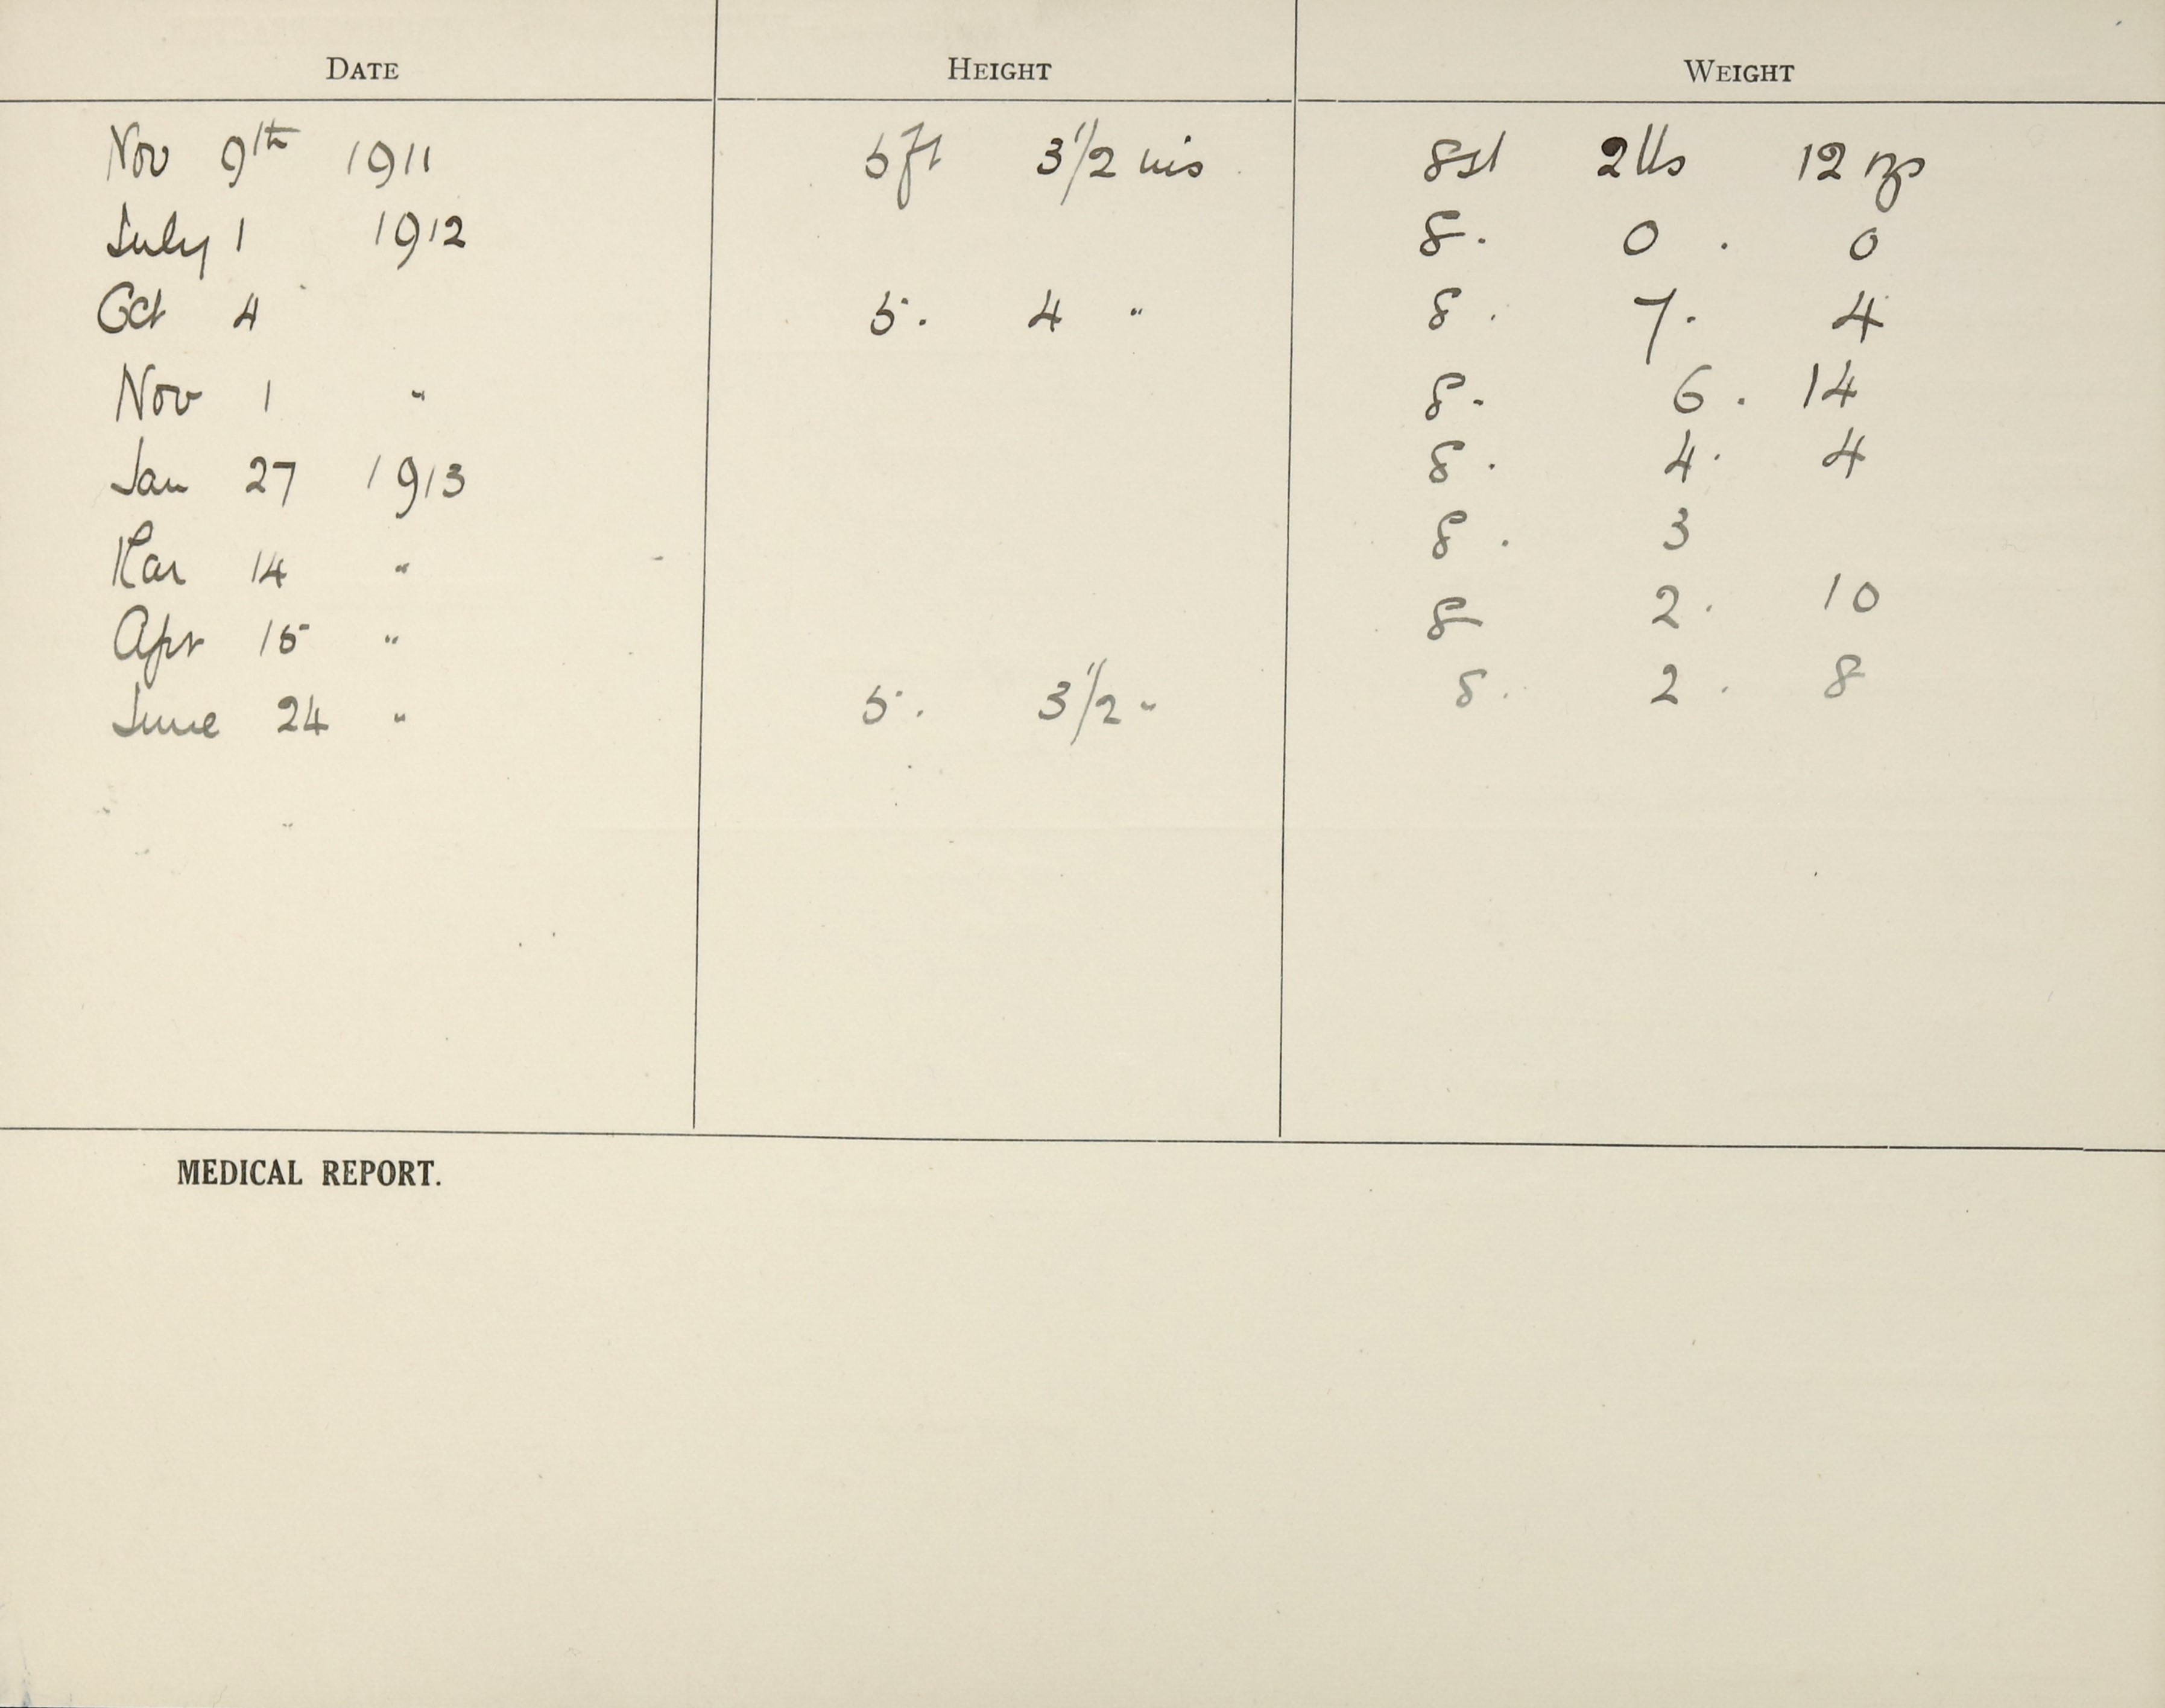 DATE HEIGHT WEIGHT
Nov 9th 1911 5 ft 3 1/2 ins 8 st 2 lbs 12 ozs
July 1 1912 8. 0. 0
Oct 4 5. 4 " 8. 7. 4
Nov 1 " 8. 6. 14
Jan 27 1913 8. 4. 4
Mar 14 " 8. 3
Apr 15 " 8 2. 10
June 24 " 5. 3 1/2 " 8. 2. 8
MEDICAL REPORT.